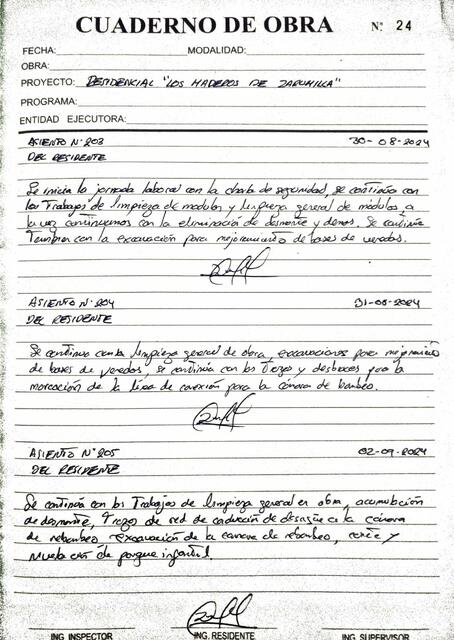 CUADERNO DE OBRA Nº 24
FECHA: MODALIDAD:
OBRA:
PROYECTO: RESIDENCIAL "LOS MADEROS DE ZARUMILLA"
PROGRAMA:
ENTIDAD EJECUTORA:
ASIENTO Nº 203 30-08-2024
DEL RESIDENTE
Se inicia la jornada laboral con la charla de seguridad, se continúa con
los Trabajos de limpieza de modulos y limpieza general de módulos a
la vez continuamos con la eliminación de desmonte y demas. Se continúa
Tambien con la excavación para mejoramiento de bases de veredas.
ASIENTO Nº 204 31-08-2024
DEL RESIDENTE
Se continuo con la limpieza general de obra, excavaciones para mejoramiento
de bases de veredas, se continúa con los Trazos y para la
marcación de la línea de conexión para la cámara de bombeo.
ASIENTO Nº 205 02-09-2024
DEL RESIDENTE
Se continúa con los Trabajos de limpieza general en obra, acumulación
de desmonte, Trazos de red de de desagüe a la cámara
de rebombeo excavación de la camara de rebombeo, corte y
de parque infantil.
ING. INSPECTOR ING. RESIDENTE ING. SUPERVISOR